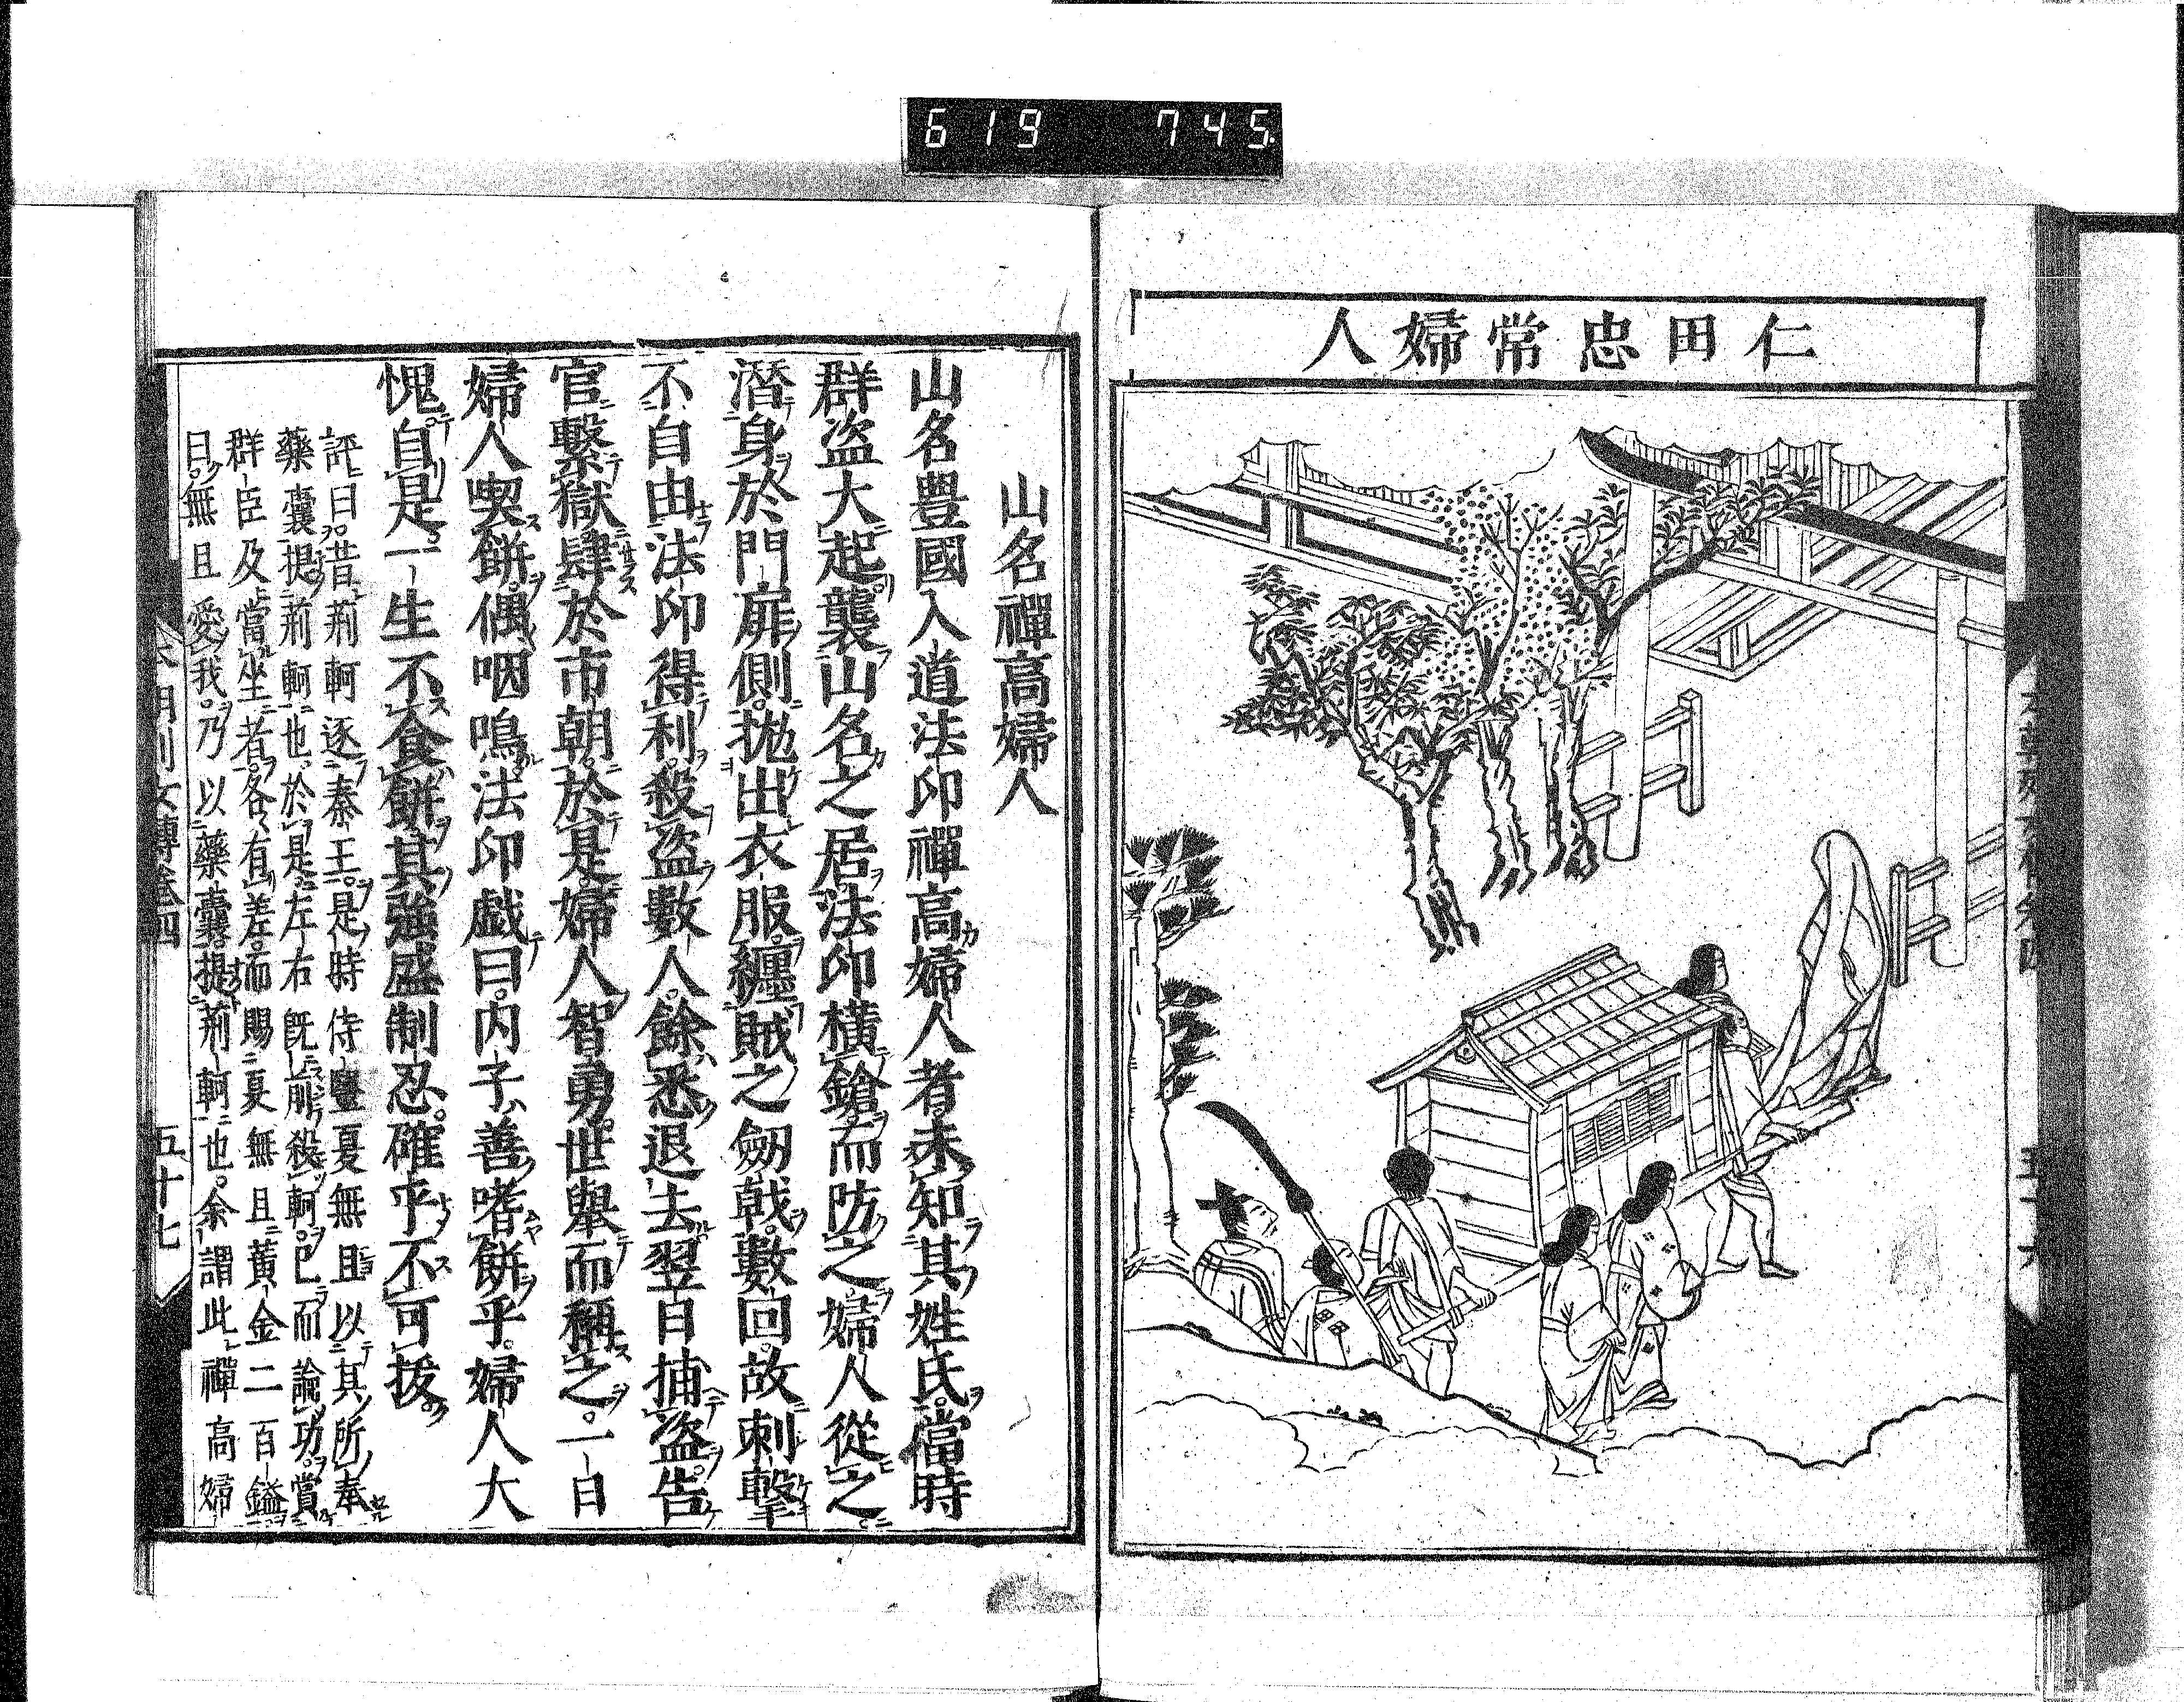 619 745
仁田忠常婦人
山名禪高婦人
山名豊國入道法印禪高婦人者未知其姓氏當時
群盗大起襲山名之居法印横鎗而防之婦人從之
潛身於門扉側。拋出衣服纒賊之劒戟。數回故刺擊
不自由法印得利殺盗數人餘悉退去翌日捕盗告
官繫獄肆於市朝於是婦人智勇世舉而稱之。一日
婦人喫餅偶咽鳴法印戯曰内子善嗜餅乎。婦人大
愧自是一生不食餅其強盛制忍確乎不可拔
評曰昔荊軻逐秦王是時侍醫夏無且以其所奉
藥囊提荊軻也於是左右既前殺軻已而論功賞
群臣及當坐者各有差而賜夏無且黃金二百鎰
曰無且愛我乃以藥囊提荊軻也余謂此禪高婦
五十七